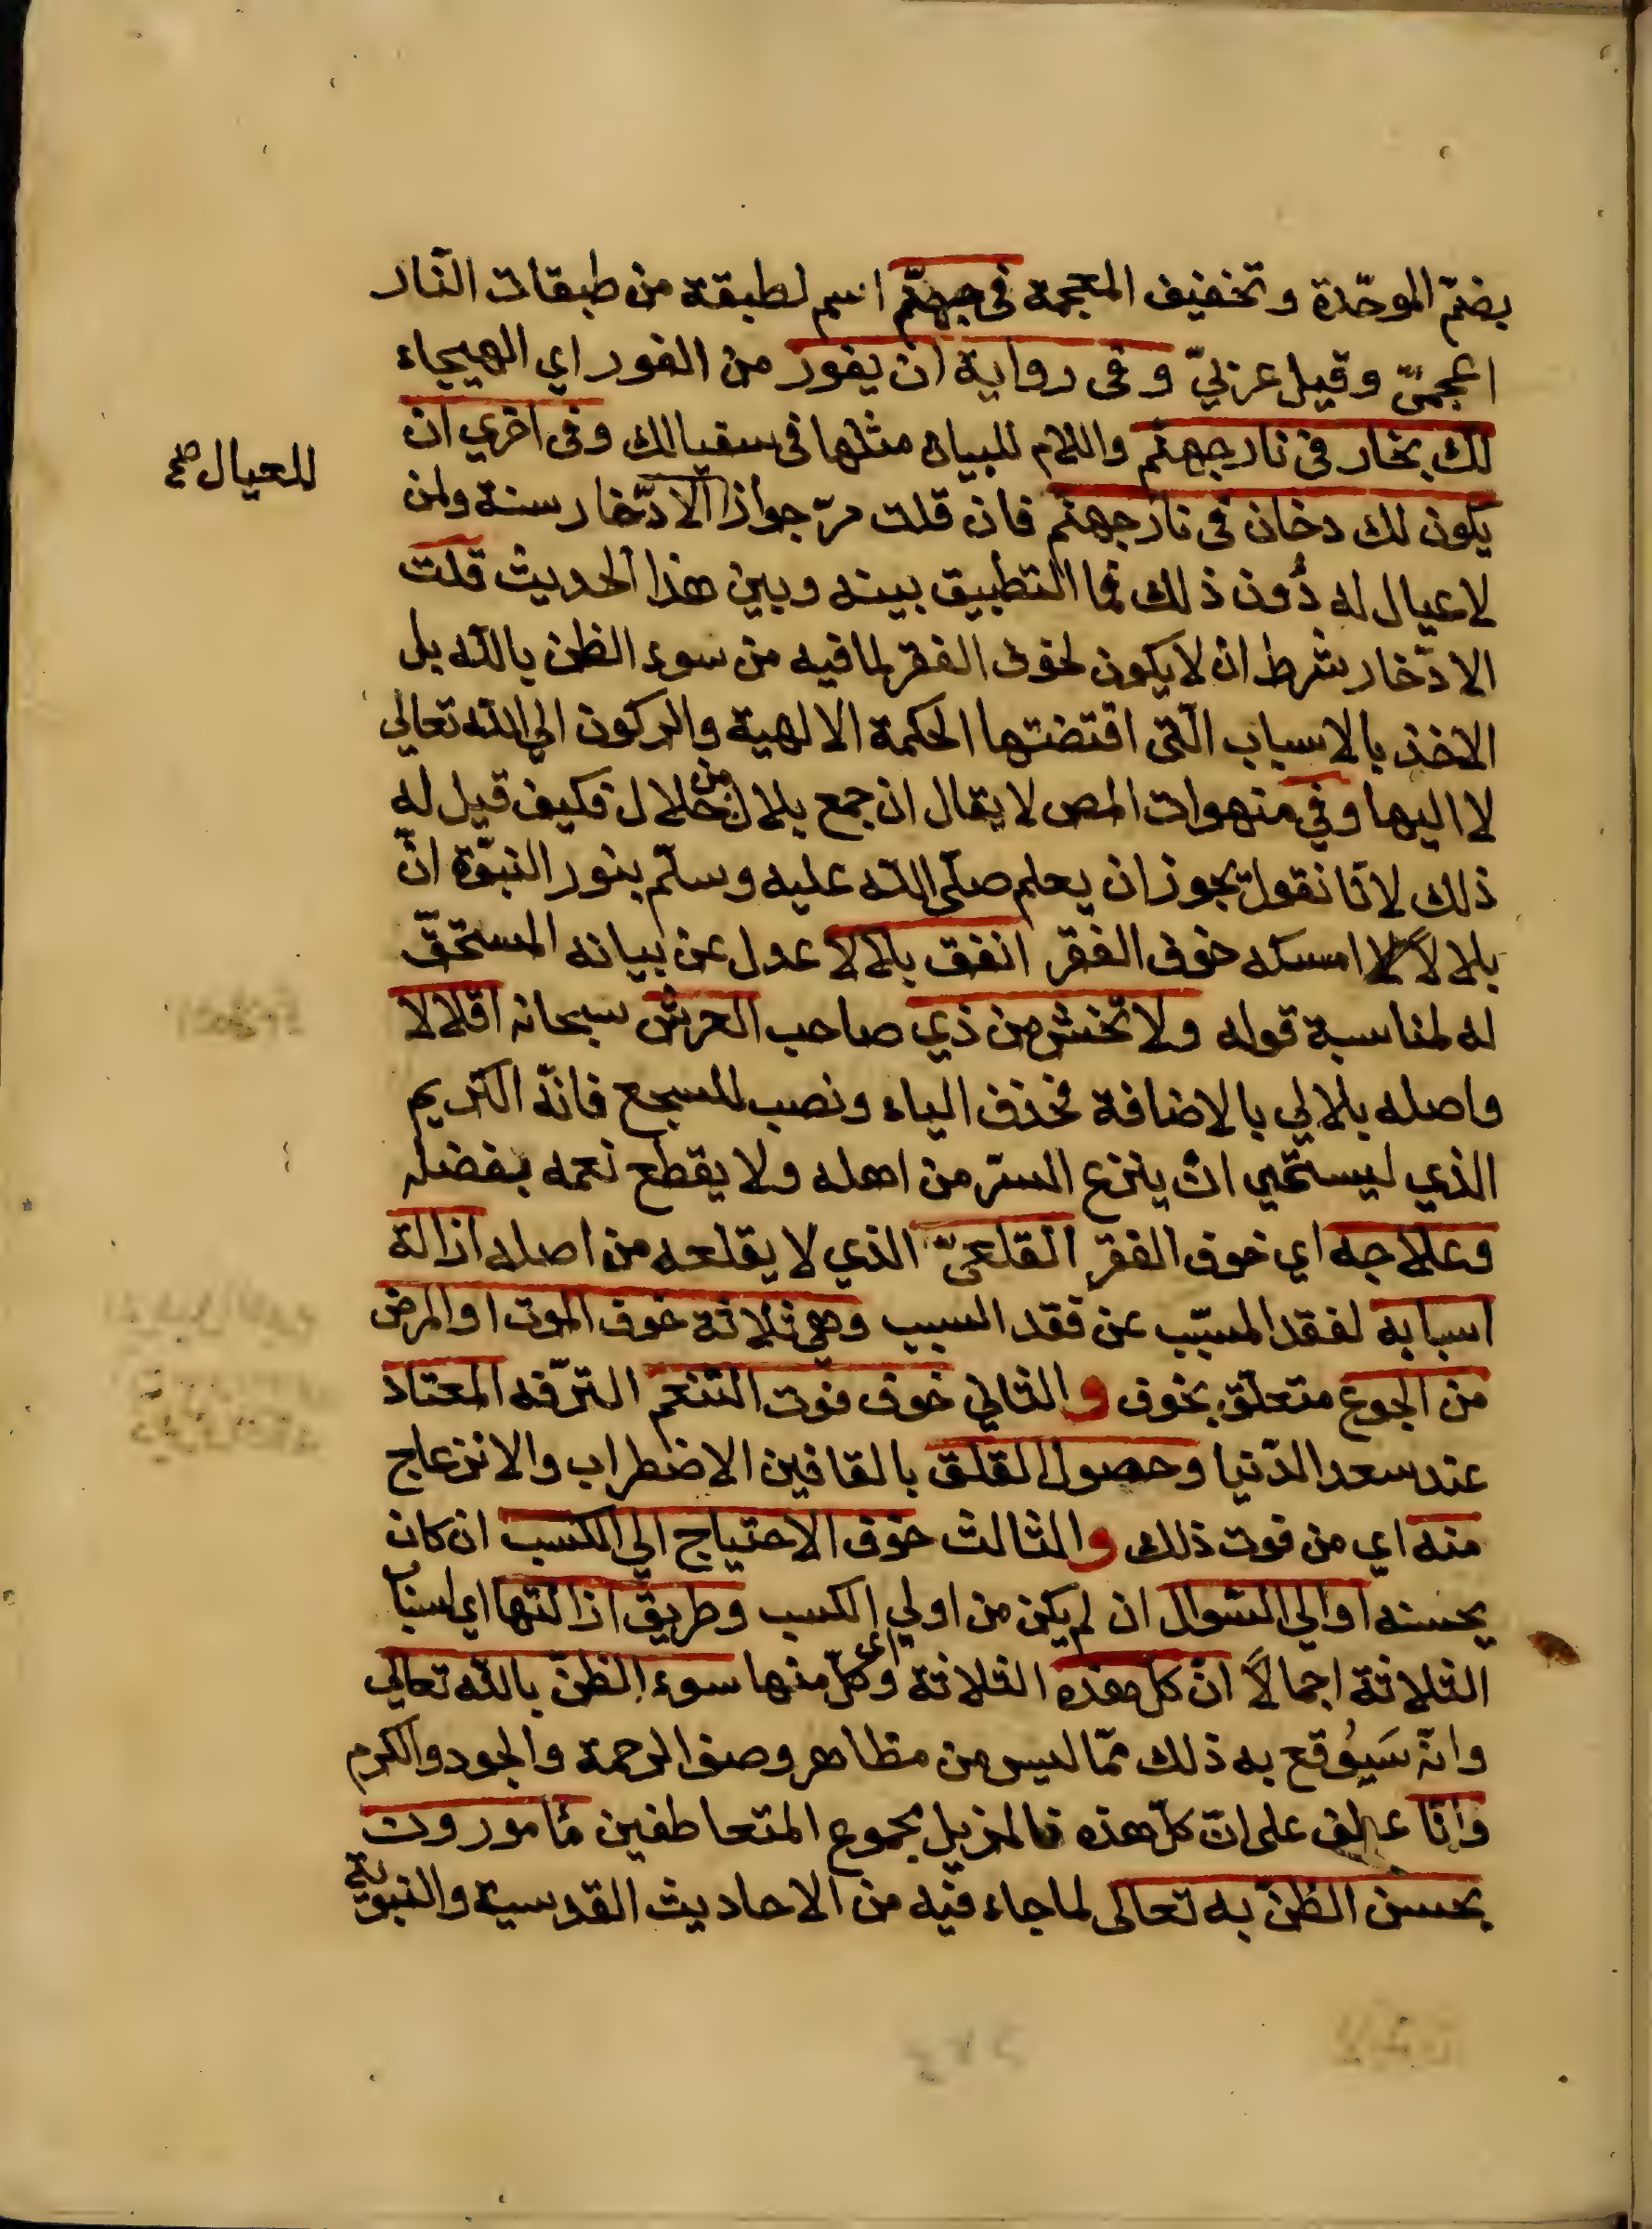 بضمّ الموحّدة وتخفيف المعجمة فى جهنّم اسم لطبقة من طبقات النّار
اعجمىّ وقيل عربيّ وفى رواية ان يفور من الفور اي الهيجاء
لك بخار فى نار جهنم واللام للبيان مثلها فى سقيا لك وفى اخري ان
للعيال صح
يكون لك دخان فى نار جهنم فان قلت مرّ جواز الادّخار سنة ولمن
لا عيال له دُون ذلك فما التطبيق بينه وبين هذا الحديث قلت
الادّخار شرط ان لا يكون لخوف الفقر لما فيه من سوء الظن بالله بل
الاخذ بالاسباب الّتى اقتضتها الحكمة الالهية والركون الي الله تعالي
لا اليها وفي منهوات المص لا يقال ان جمع بلال من حلال فكيف قيل له
ذلك لانّا نقول يجوز ان يعلم صلّى الله عليه وسلّم بنور النبوّة انّ
بلالاً امسكه خوف الفقر انفق بلالا عدل عن بيانه المستحقّ
له لمناسبة قوله ولا تخش من ذي صاحب العرش سبحانه اقلالا
واصله بلالي بالاضافة فحذف الياء ونصب للسجع فانّه الكريم
الذي ليستحيي ان ينزع الستر من اهله ولا يقطع نعمه بفضله
وعلاجه اي خوف الفقر القلعىّ الذي لا يقلعه من اصله ازالة
اسبابه لفقد المسبّب عن فقد السبب وهى ثلاثة خوف الموت او المرض
من الجوع متعلّق بخوف والثاني خوف فوت التنعم الترّفه المعتاد
عند سعد الدّنيا وحصول القلق بالقافين الاضطراب والانزعاج
منه اي من فوت ذلك والثالث خوف الاحتياج الي الكسب ان كان
يحسنه او الي السّوال ان لم يكن من اولي الكسب وطريق ازالتها اي اسباب
الثلاثة اجمالاً انّ كل هذه الثلاثة اي وكلّ منها سوء الظنّ بالله تعالي
وانّه سَيُوقع به ذلك ممّا ليس من مظاهر وصف الرحمة والجود والكرم
وانّا عطف على انّ كلّ هذه فالمزيل مجموع المتعاطفين مٔامورون
بحسن الظنّ به تعالى لما جاء فيه من الاحاديث القدسية والنبويّة